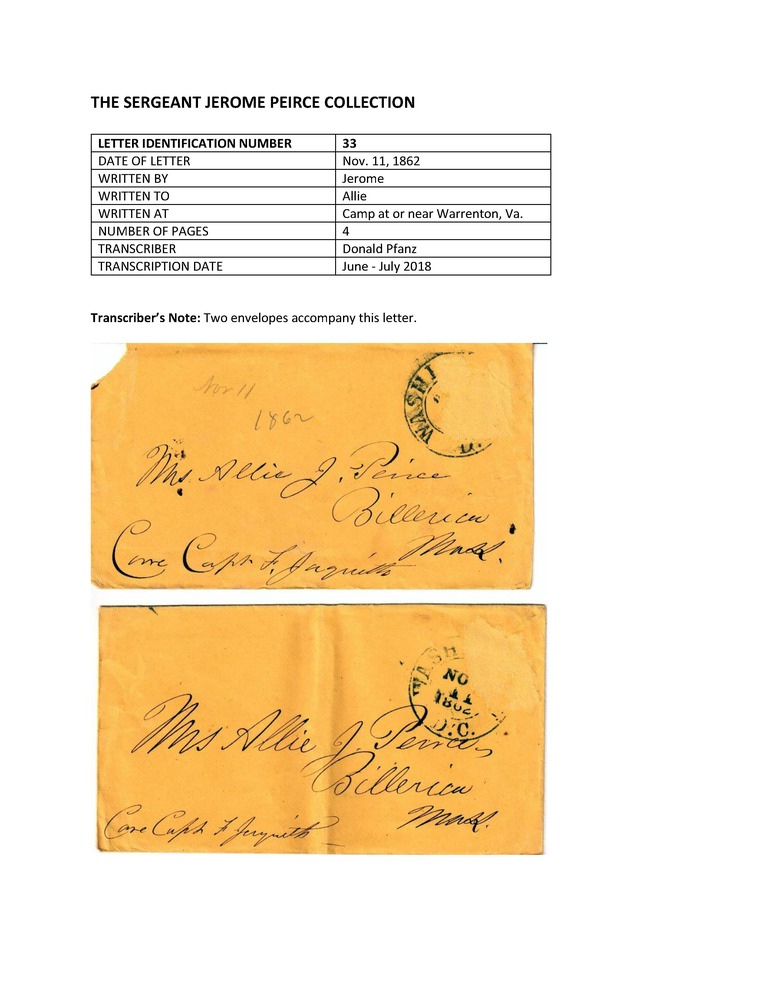 THE SERGEANT JEROME PEIRCE COLLECTION
LETTER IDENTIFICATION NUMBER 33
DATE OF LETTER Nov. 11, 1862
WRITTEN BY Jerome
WRITTEN TO Allie
WRITTEN AT Camp at or near Warrenton, Va.
NUMBER OF PAGES 4
TRANSCRIBER Donald Pfanz
TRANSCRIPTION DATE June - July 2018
Transcriber's Note: Two envelopes accompany this letter.
Nov 11
1862
WASHI
D.
Mrs. Allie J. Peirce
Billerica
Mass.
Care Capt F. Jaquith
WASH
NO
11
1862
D.C.
Mrs Allie J. Peirce
Billerica
Mass.
Care Capt F Jaquith